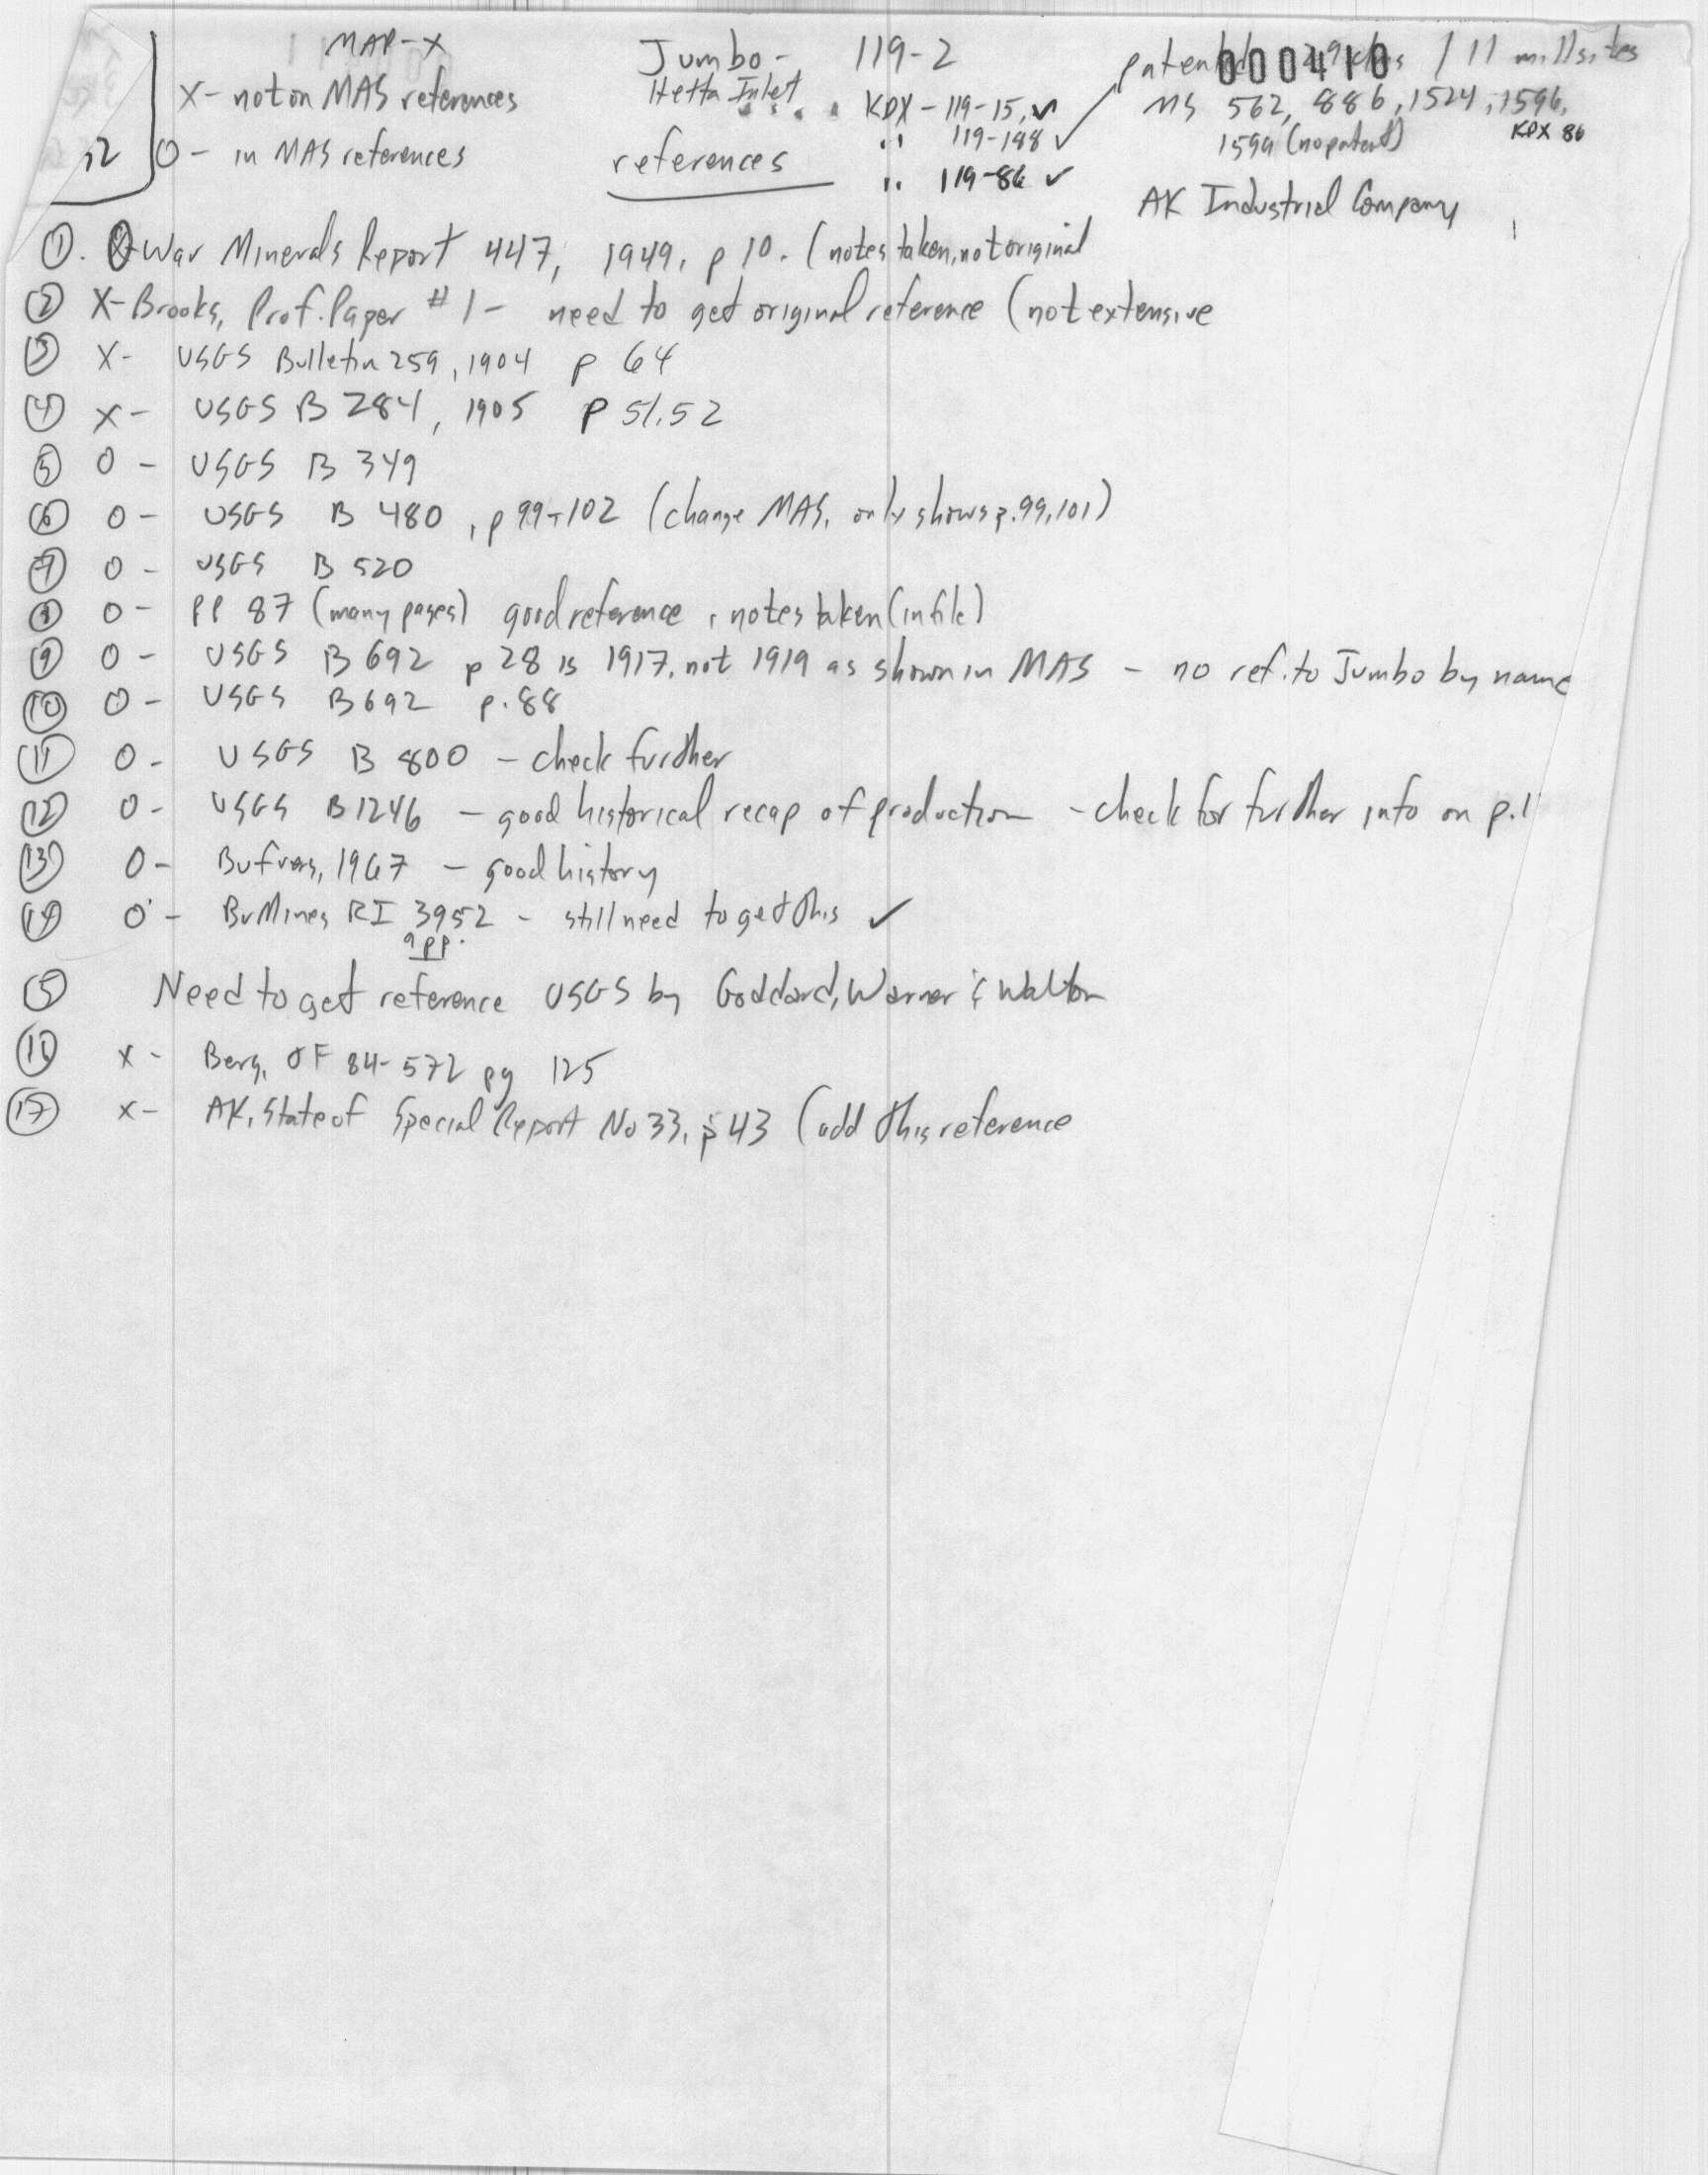 MAP-X
Jumbo - 119-2
patented 29 clms / 11 millsites
000410
X- not on MAS references
Hetta Inlet
KDX - 119-15, ✓
MS 562, 886, 1524, 1596,
" 119-148 ✓
1599 (no patent)
KDX 86
12
O - in MAS references
references
" 119-86 ✓
AK Industrial Company
①. O-War Minerals Report 447, 1949, p 10. (notes taken, not original
② X-Brooks, Prof. Paper #1 - need to get original reference (not extensive
③ X- USGS Bulletin 259, 1904 p 64
④ X- USGS B 284, 1905 p 51,52
⑤ O - USGS B 349
⑥ O - USGS B 480, p 99-102 (change MAS, only shows p.99,101)
⑦ O - USGS B 520
⑧ O - PP 87 (many pages) good reference, notes taken (in file)
⑨ O - USGS B 692 p 28 is 1917, not 1919 as shown in MAS - no ref. to Jumbo by name
⑩ O - USGS B692 p.88
⑪ O - USGS B 800 - check further
⑫ O- USGS B1246 - good historical recap of production - check for further info on p.11
⑬ O- Bufvers, 1967 - good history
⑭ O - BuMines RI 3952 - still need to get this ✓
9 pp.
⑮ Need to get reference USGS by Goddard, Warner & Walton
⑯ X - Berg, OF 84-572 pg 125
⑰ X- AK, State of Special Report No 33, p 43 (add this reference